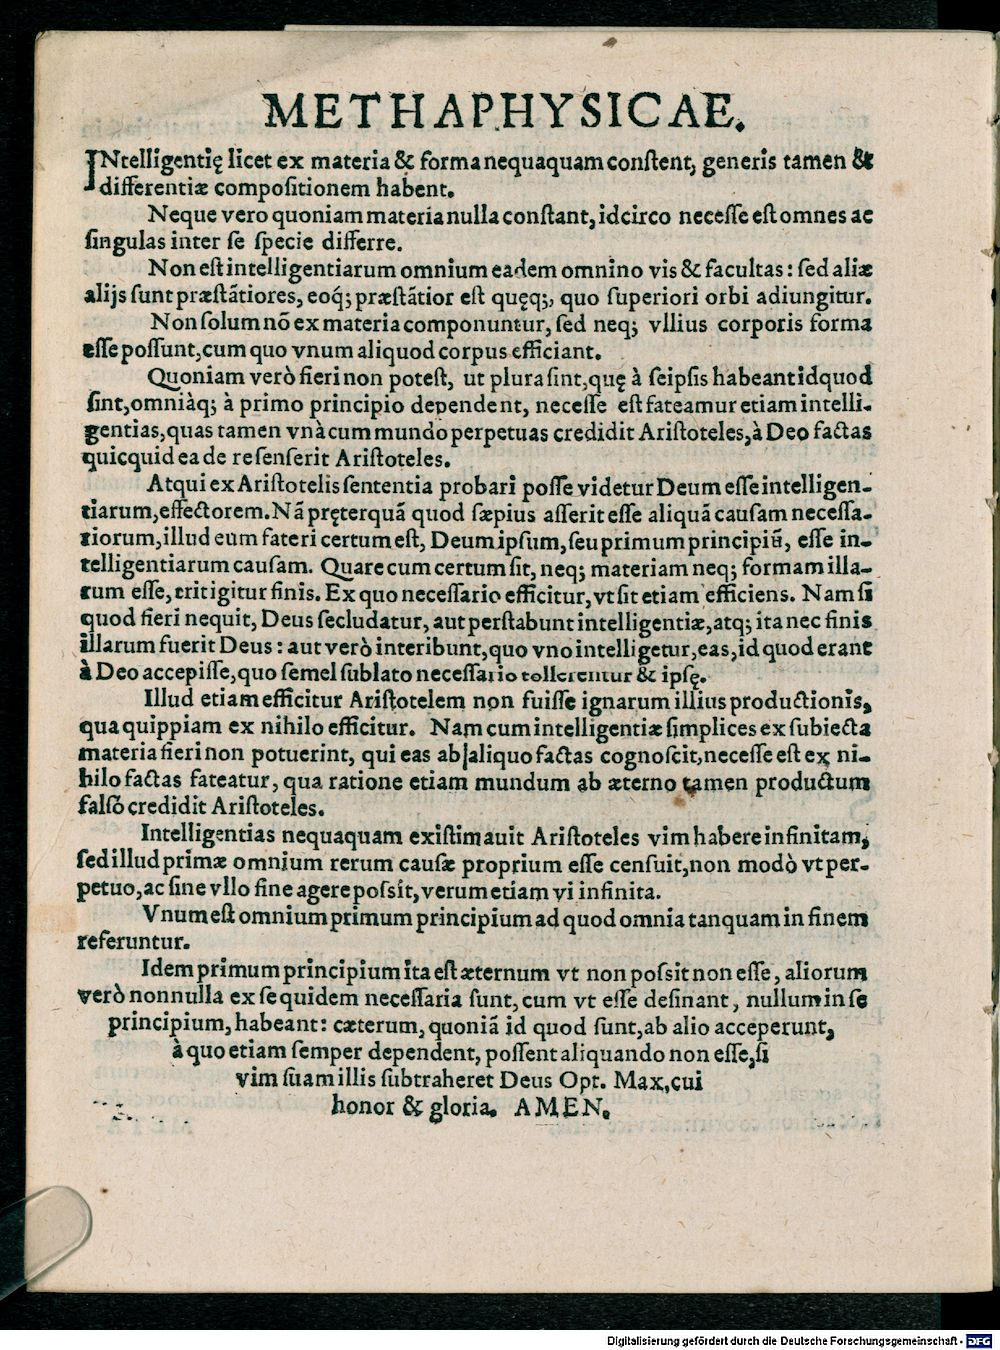 METHAPHYSICAE.
INtelligentię licet ex materia & forma nequaquam constent, generis tamen &
differentiæ compositionem habent.
Neque vero quoniam materia nulla constant, idcirco necesse est omnes ac
singulas inter se specie differre.
Non est intelligentiarum omnium eadem omnino vis & facultas: sed aliæ
alijs sunt præstãtiores, eoq́; præstãtior est quęq;, quo superiori orbi adiungitur.
Non solum nõ ex materia componuntur, sed neq; vllius corporis forma
esse possunt, cum quo vnum aliquod corpus efficiant.
Quoniam verò fieri non potest, ut plura sint, quę à seipsis habeant idquod
sint, omniàq; à primo principio dependent, necesse est fateamur etiam intelli-
gentias, quas tamen vnà cum mundo perpetuas credidit Aristoteles, à Deo factas
quicquid ea de re senserit Aristoteles.
Atqui ex Aristotelis sententia probari posse videtur Deum esse intelligen-
tiarum, effectorem. Nã pręterquã quod sæpius asserit esse aliquã causam necessa-
riorum, illud eum fateri certum est, Deum ipsum, seu primum principiũ, esse in-
telligentiarum causam. Quare cum certum sit, neq; materiam neq; formam illa-
rum esse, erit igitur finis. Ex quo necessario efficitur, vt sit etiam efficiens. Nam si
quod fieri nequit, Deus secludatur, aut perstabunt intelligentiæ, atq; ita nec finis
illarum fuerit Deus: aut verò interibunt, quo vno intelligetur, eas, id quod erant
à Deo accepisse, quo semel sublato necessario tollerentur & ipsę.
Illud etiam efficitur Aristotelem non fuisse ignarum illius productionis,
qua quippiam ex nihilo efficitur. Nam cum intelligentiæ simplices ex subiecta
materia fieri non potuerint, qui eas ab aliquo factas cognoscit, necesse est ex ni-
hilo factas fateatur, qua ratione etiam mundum ab æterno tamen productum
falsò credidit Aristoteles.
Intelligentias nequaquam existimauit Aristoteles vim habere infinitam,
sed illud primæ omnium rerum causæ proprium esse censuit, non modò vt per-
petuo, ac sine vllo fine agere possit, verum etiam vi infinita.
Vnum est omnium primum principium ad quod omnia tanquam in finem
referuntur.
Idem primum principium ita est æternum vt non possit non esse, aliorum
verò nonnulla ex se quidem necessaria sunt, cum vt esse desinant, nullum in se
principium, habeant: cæterum, quoniã id quod sunt, ab alio acceperunt,
à quo etiam semper dependent, possent aliquando non esse, si
vim suam illis subtraheret Deus Opt. Max, cui
honor & gloria. AMEN.
Digitalisierung gefördert durch die Deutsche Forschungsgemeinschaft - DFG